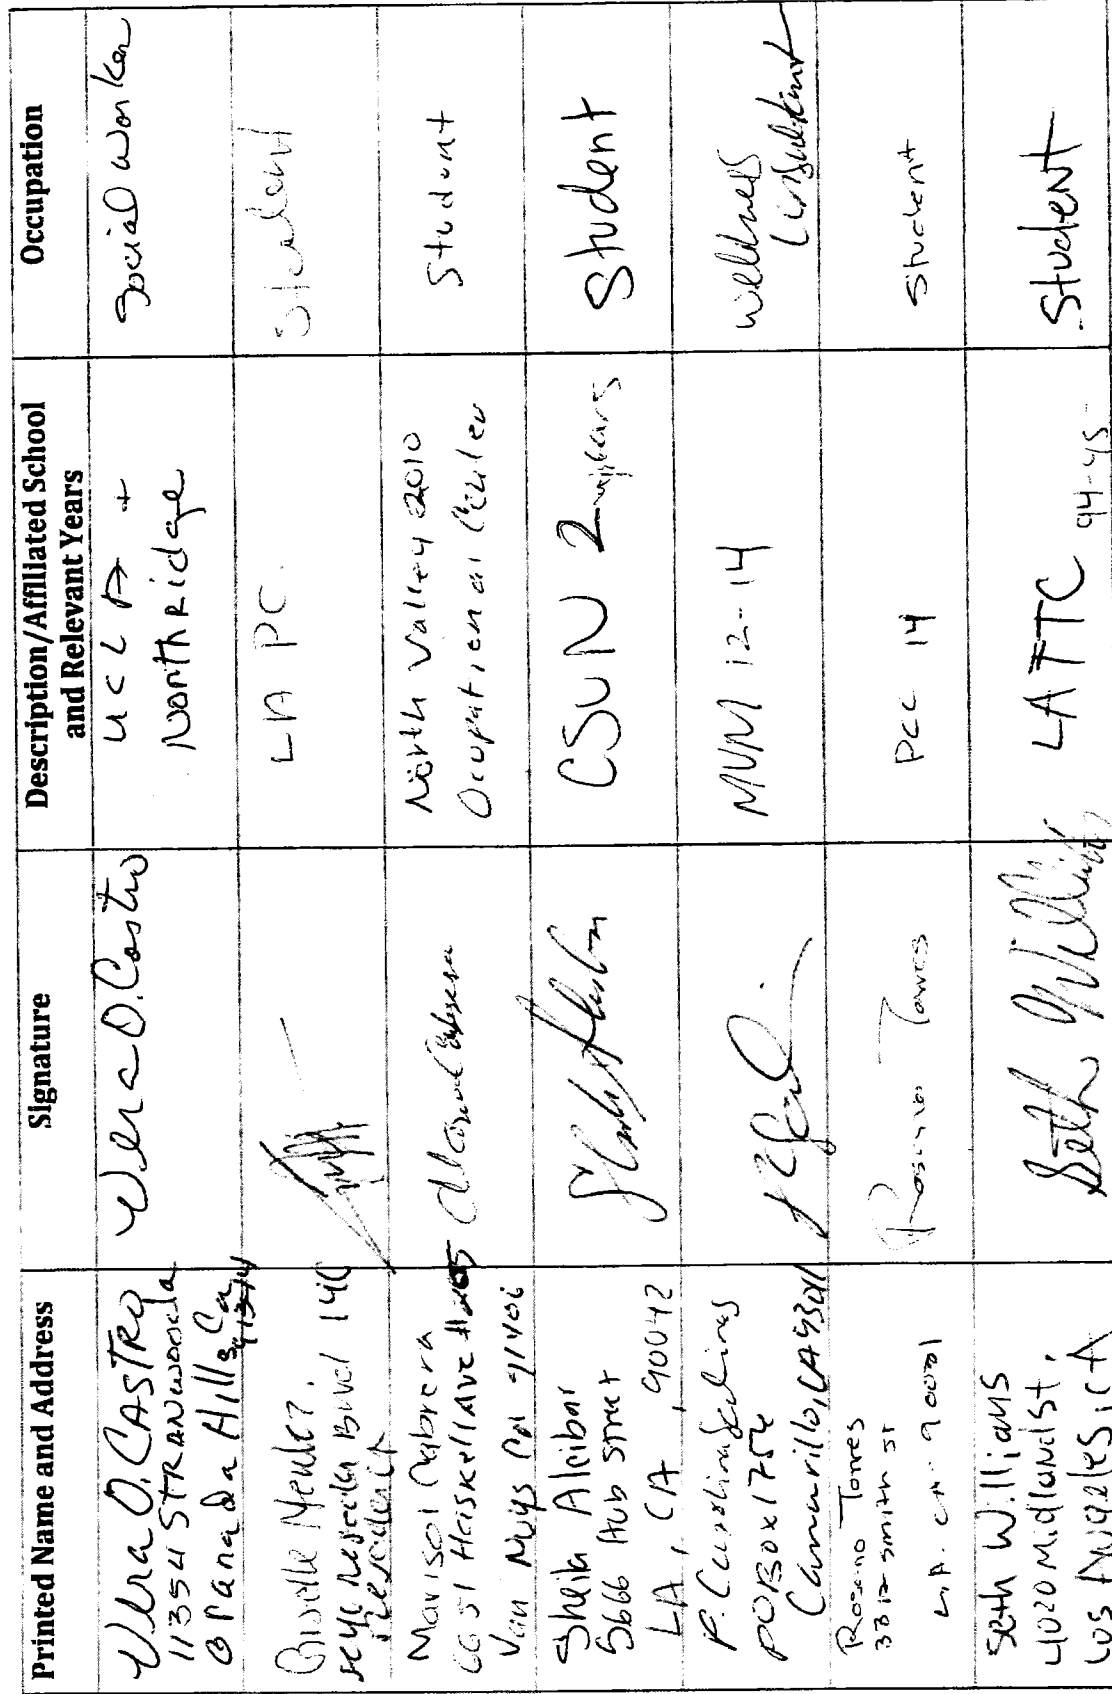 Printed Name and Address
Signature
Description/Affiliated School
and Relevant Years
Occupation
Vera O. CASTRO
11354 STRANWOOD
Granada Hills Ca
Vera O. Castro
UCLA +
Northridge
Social Worker
Blvd
Reseda
LA PC.
Student
Marisol Cabrera
Haskell Ave
Van Nuys Ca 91406
Marisol Cabrera
North Valley 2010
Occupational Center
Student
Sheila Alcibar
5666 Aub Street
LA, CA, 90042
CSUN 2
Student
P. Carolina
PO Box 1754
Camarillo, CA 93011
MVM 12-14
wellness
Consultant
Torres
3312 Smith st
LA. CA.
Torres
PCC 14
Student
Seth Williams
4020 Midland St.
Los Angeles, CA
Seth Williams
LATTC 94-95
Student